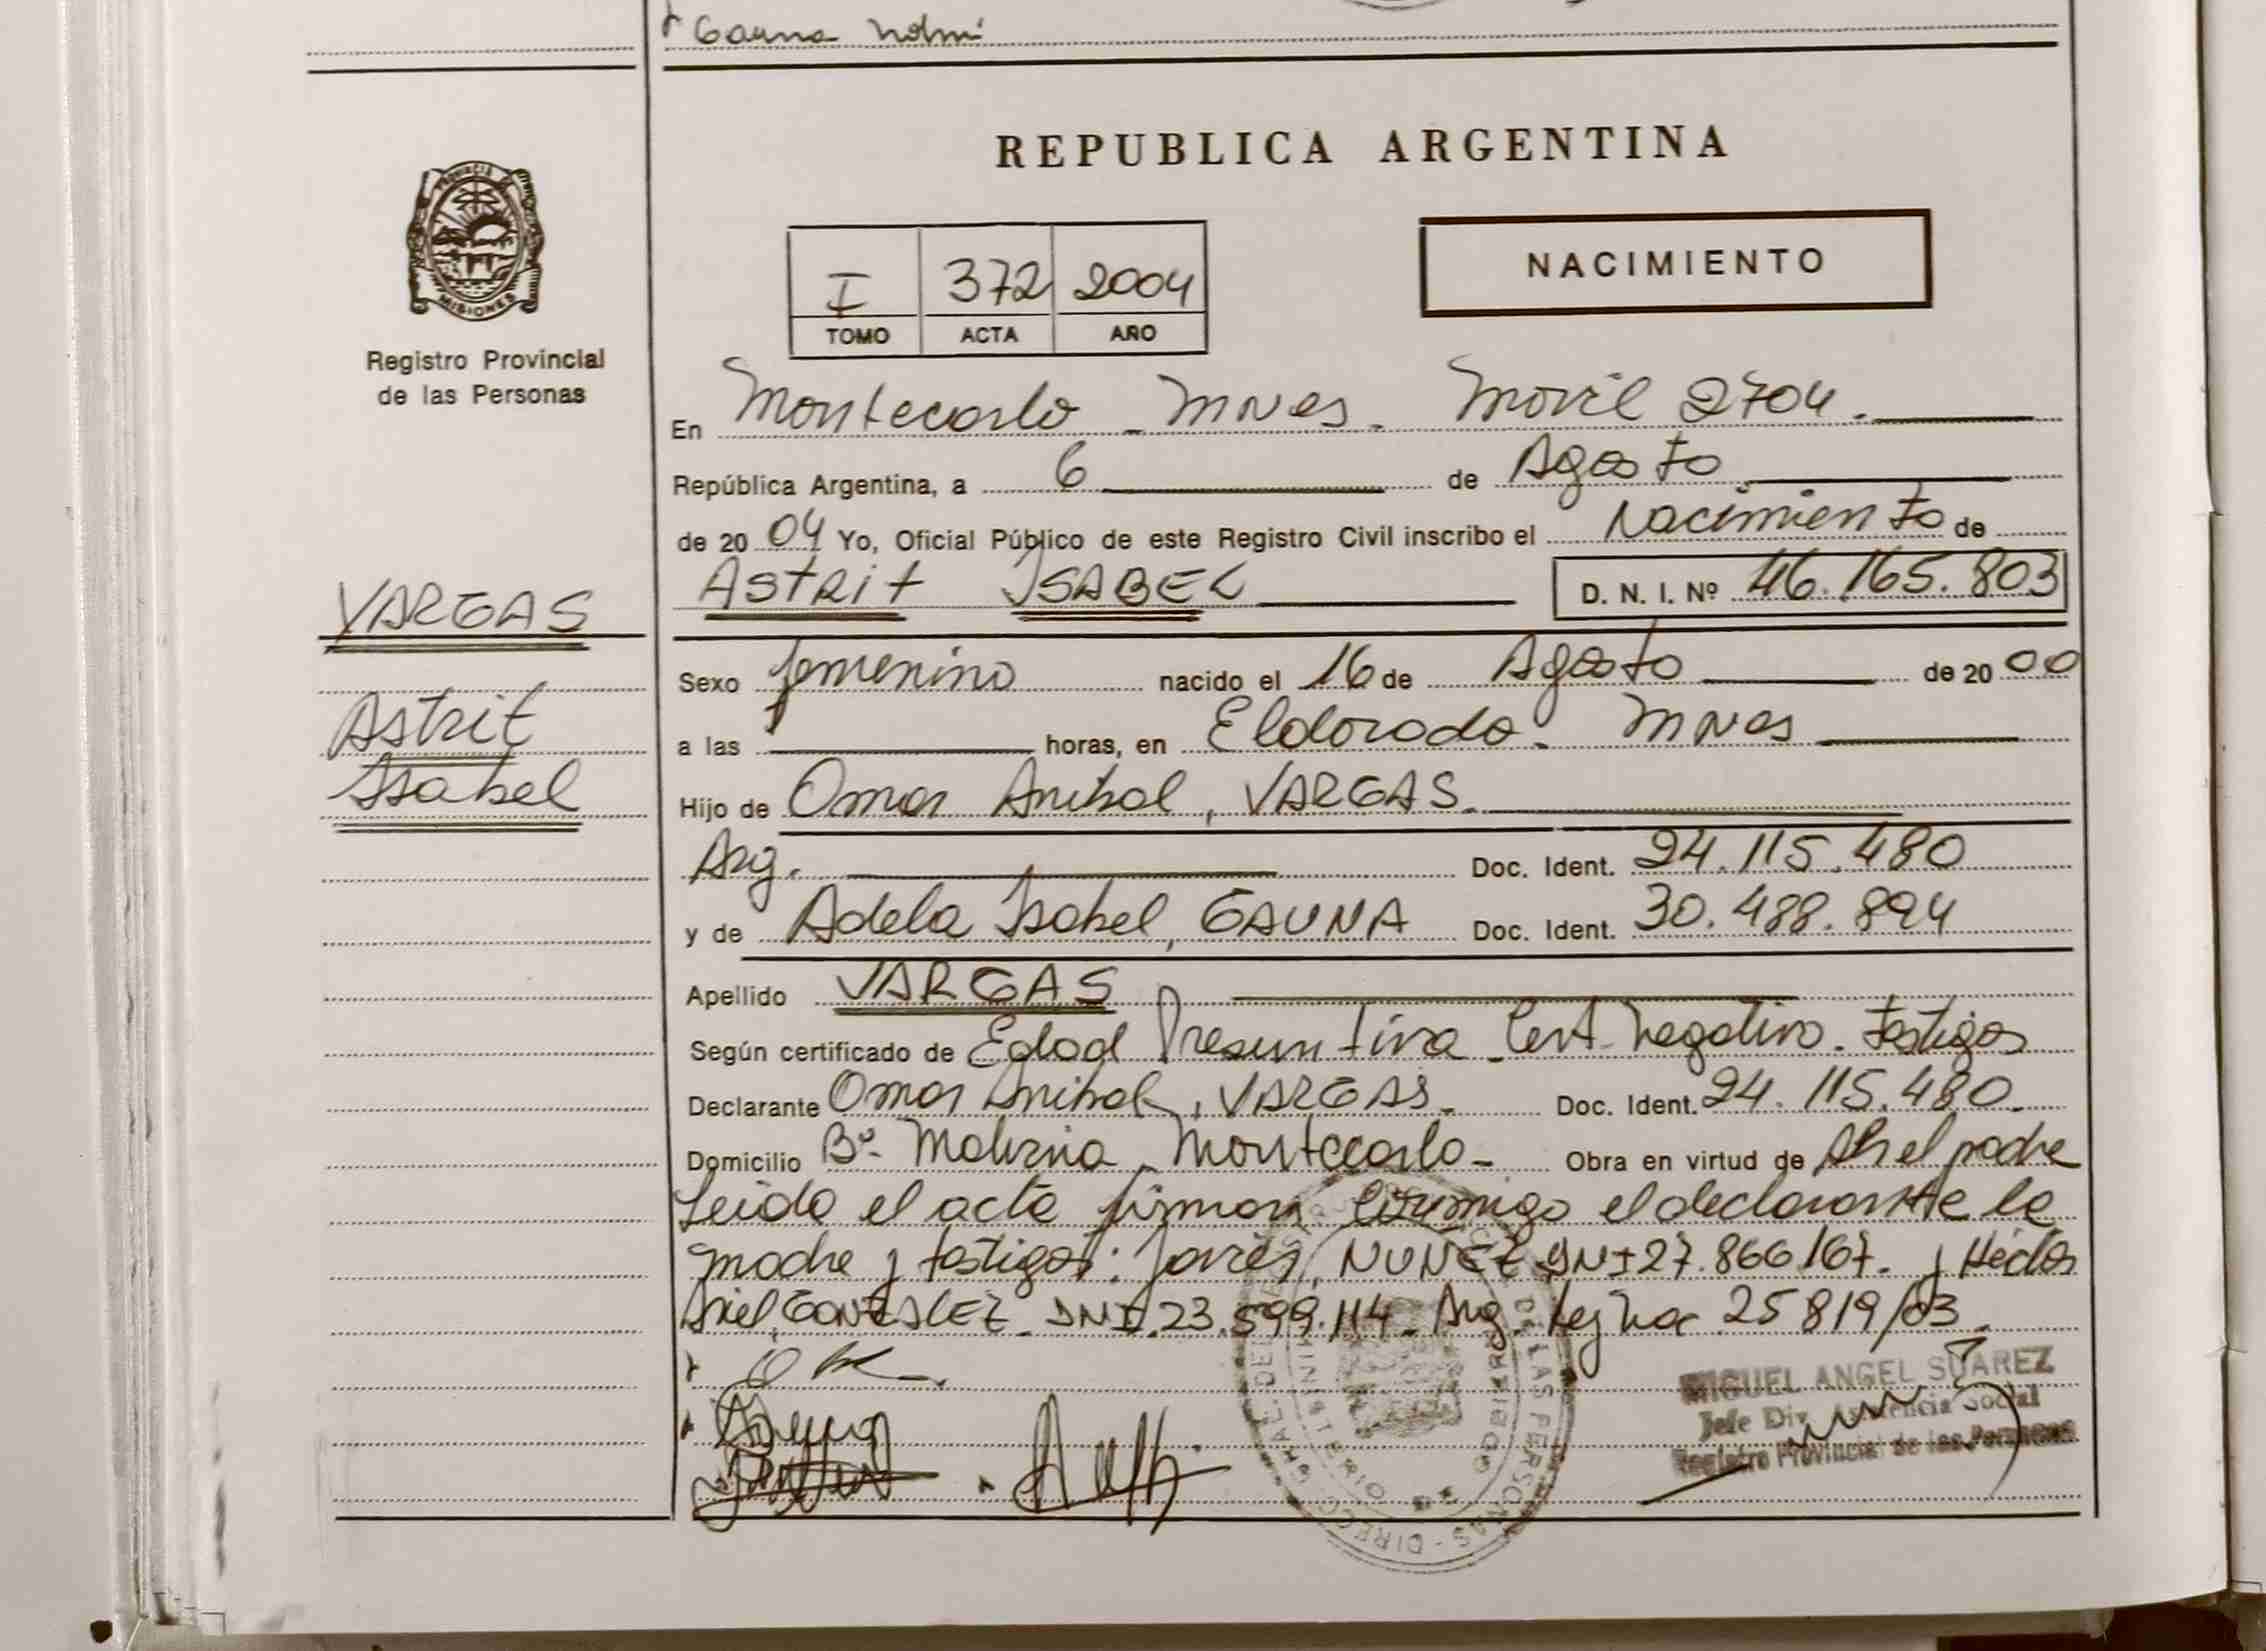 Gauna Nolmi
REPUBLICA ARGENTINA
PROVINCIA DE
MISIONES
Registro Provincial
de las Personas
NACIMIENTO
I 372 2004
TOMO ACTA AÑO
En Montecarlo - MNes. Movil 2704.
República Argentina, a 6 de Agosto
de 2004 Yo, Oficial Público de este Registro Civil inscribo el Nacimiento de
Astrit ISABEL D. N. I. Nº 46.165.803
VARGAS
Astrit
Isabel
Sexo femenino nacido el 16 de Agosto de 2000
a las horas, en Eldorado - MNes
Hijo de Omar Anibal, VARGAS.
Arg. Doc. Ident. 24.115.480
y de Adela Isabel, GAUNA Doc. Ident. 30.488.894
Apellido VARGAS
Según certificado de Edad Presuntiva - Cert. Negativo. Testigos
Declarante Omar Anibal, VARGAS. Doc. Ident. 24.115.480.
Domicilio Bº Montecarlo - Obra en virtud de el padre
Leida el acta firman conmigo el declarante la
madre y testigos: NUNEZ DNI 27.866.167. y Hector
Ariel, GONZALEZ - DNI. 23.599.114 - Arg. 25819/03.
MIGUEL ANGEL SUAREZ
Jefe Div. Asistencia Social
Registro Provincial de las Personas